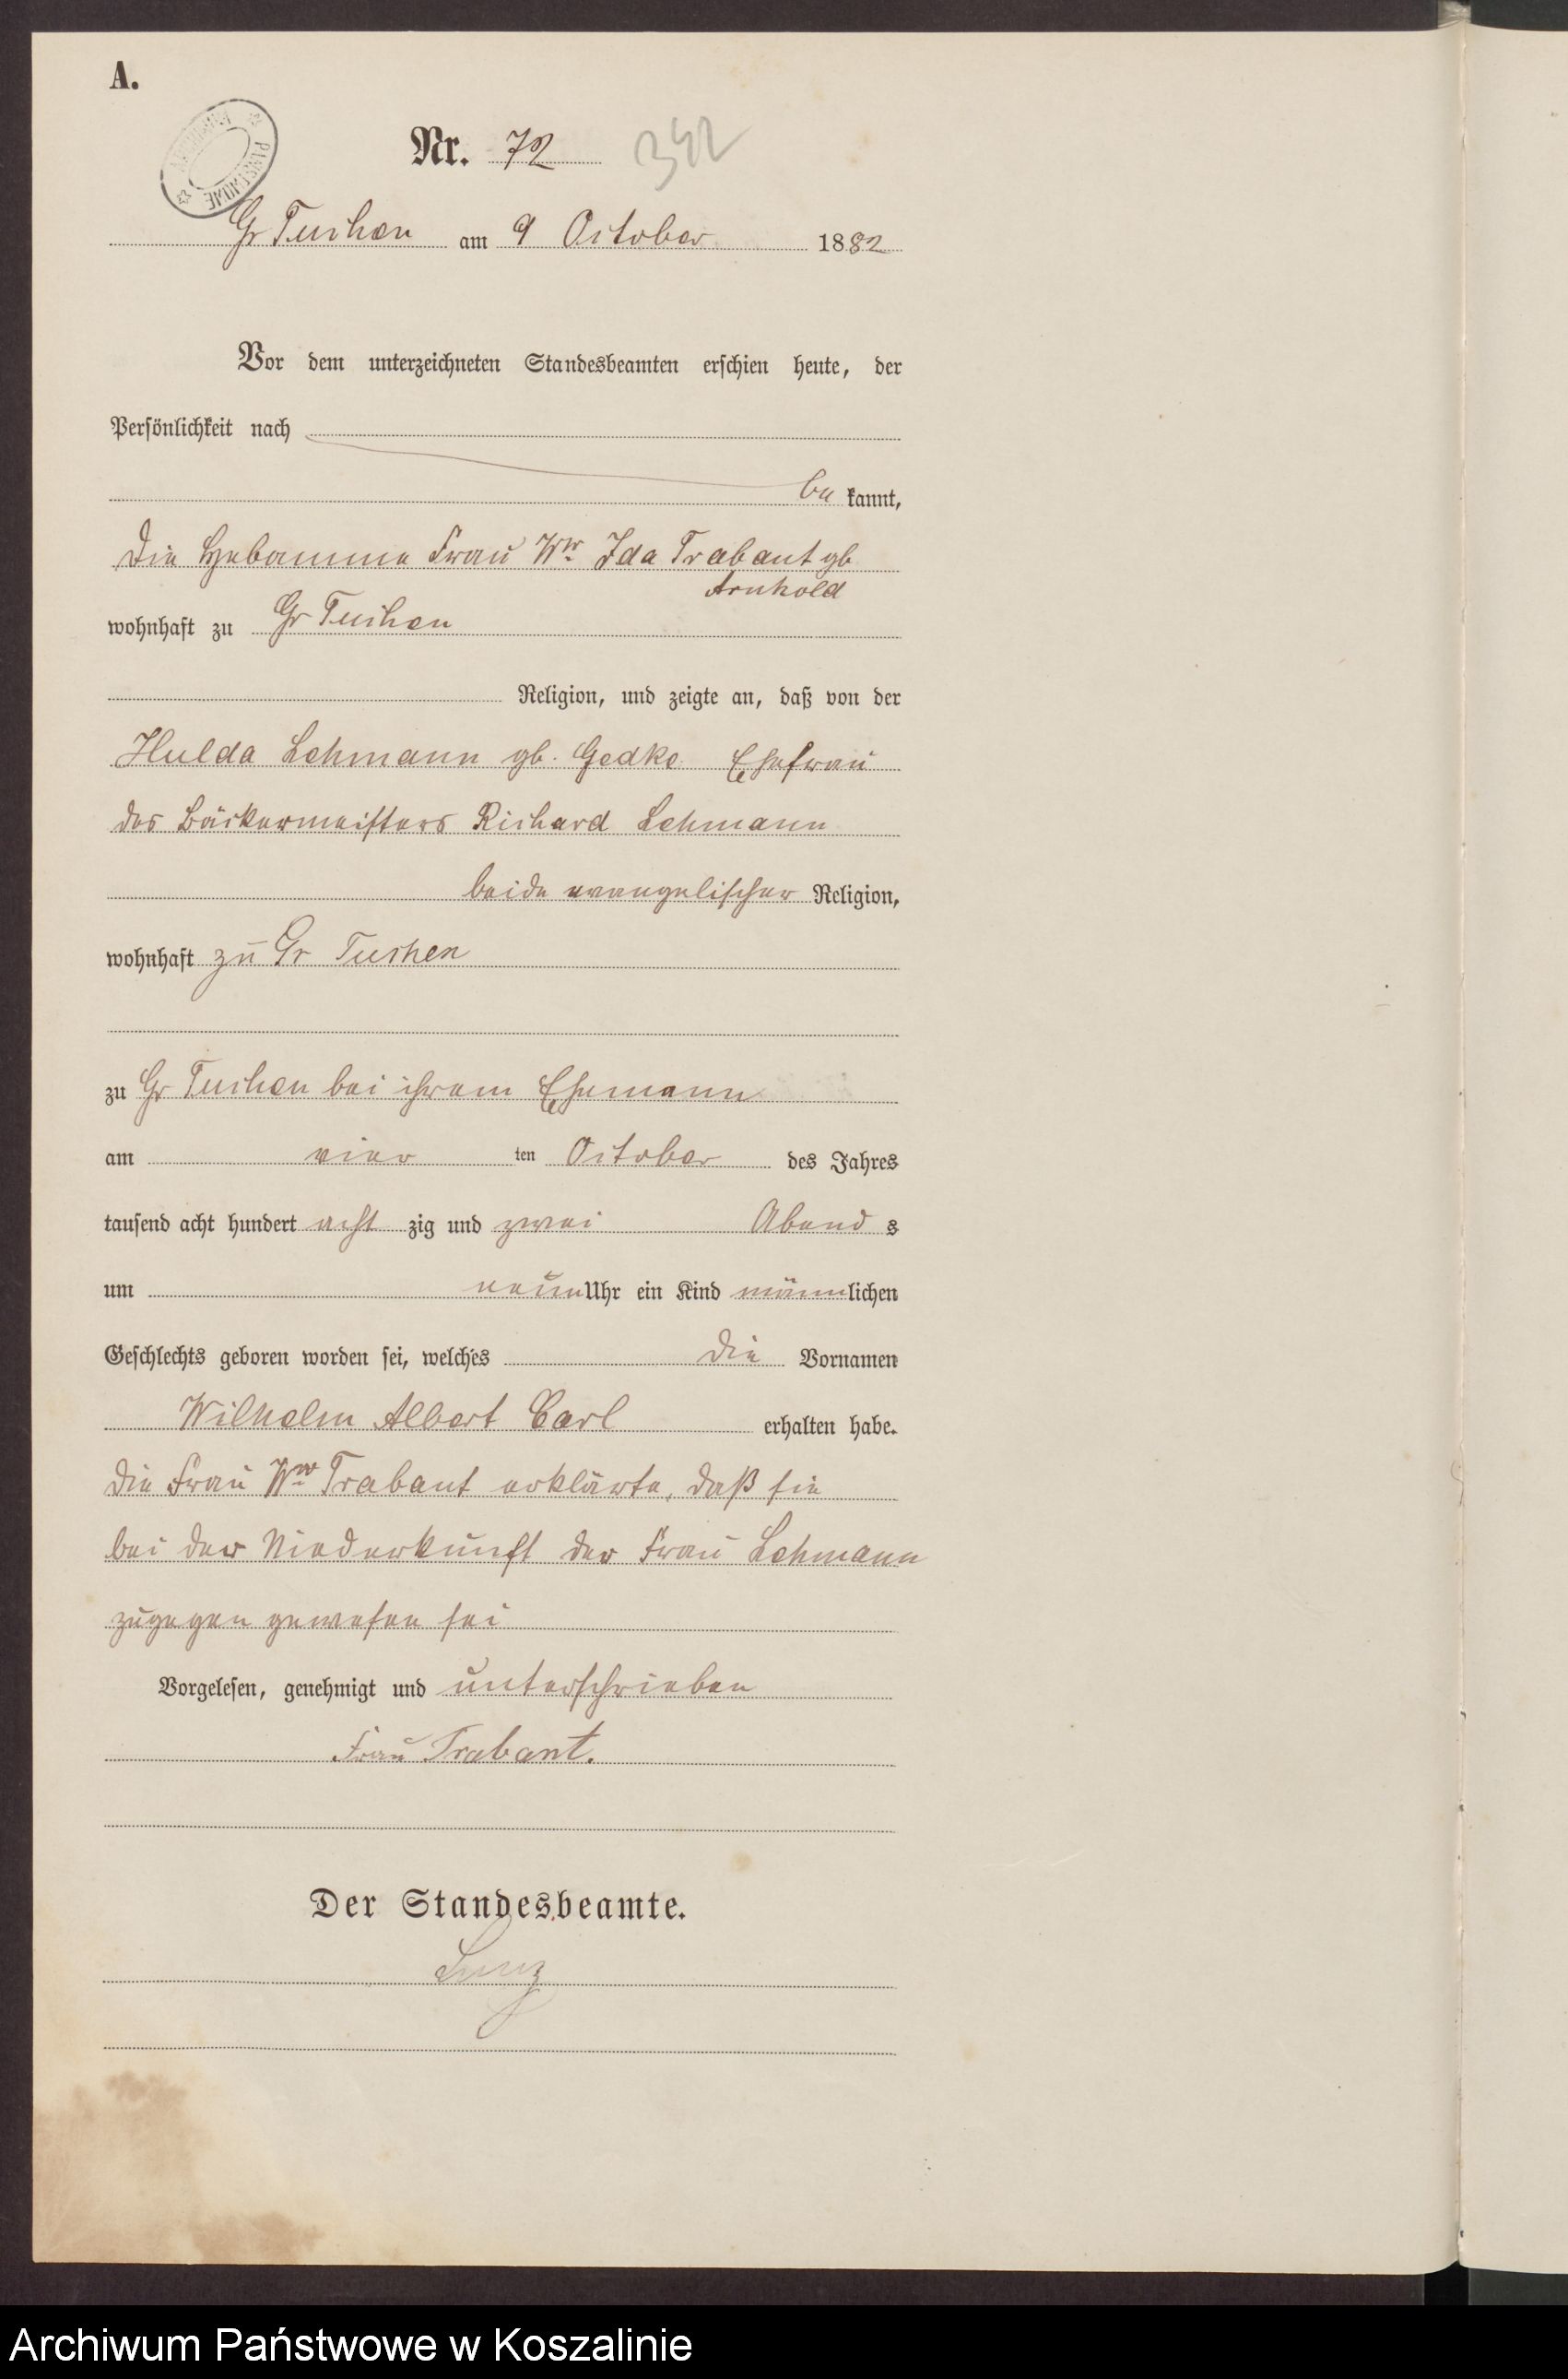 A.
ARCHIWUM PAŃSTWOWE
Nr. 72 342
Gr Tuchen am 9 October 1882
Vor dem unterzeichneten Standesbeamten erschien heute, der
Persönlichkeit nach
be kannt,
die Hebamme Frau Ww Ida Trabant gb
Arnhold
wohnhaft zu Gr Tuchen
Religion, und zeigte an, daß von der
Hulda Lehmann gb. Gedke Ehefrau
des Bäckermeisters Richard Lehmann
beide evangelischer Religion,
wohnhaft zu Gr Tuchen
zu Gr Tuchen bei ihrem Ehemann
am vier ten October des Jahres
tausend acht hundert acht zig und zwei Abend s
um neun Uhr ein Kind männlichen
Geschlechts geboren worden sei, welches die Vornamen
Wilhelm Albert Carl erhalten habe.
die Frau Ww Trabant erklärte, daß sie
bei der Niederkunft der Frau Lehmann
zugegen gewesen sei
Vorgelesen, genehmigt und unterschrieben
Frau Trabant.
Der Standesbeamte.
Archiwum Państwowe w Koszalinie